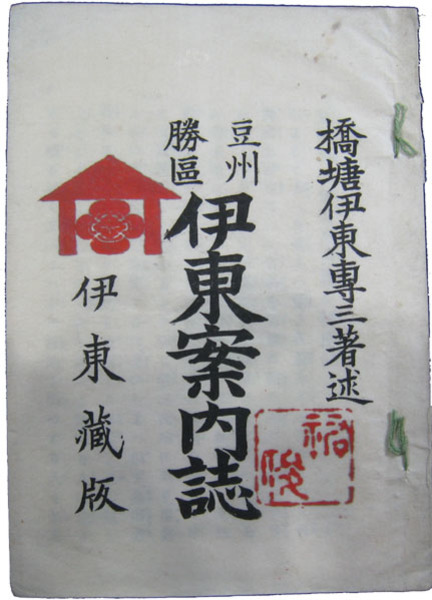 橋塘伊東專三著述
豆州
勝區
伊東案内誌
伊東藏版
裕
俊